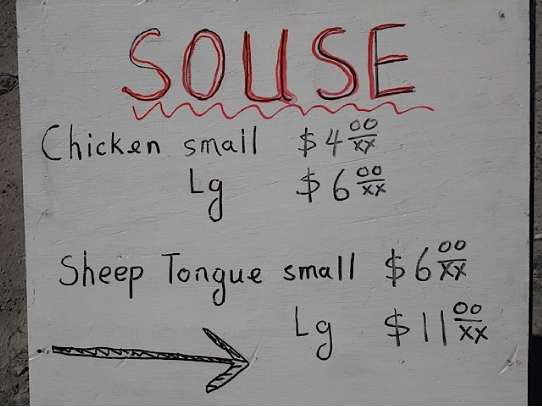 SOUSE
Chicken small $4 00/xx
Lg $6 00/xx
Sheep Tongue small $6 00/xx
Lg $11 00/xx